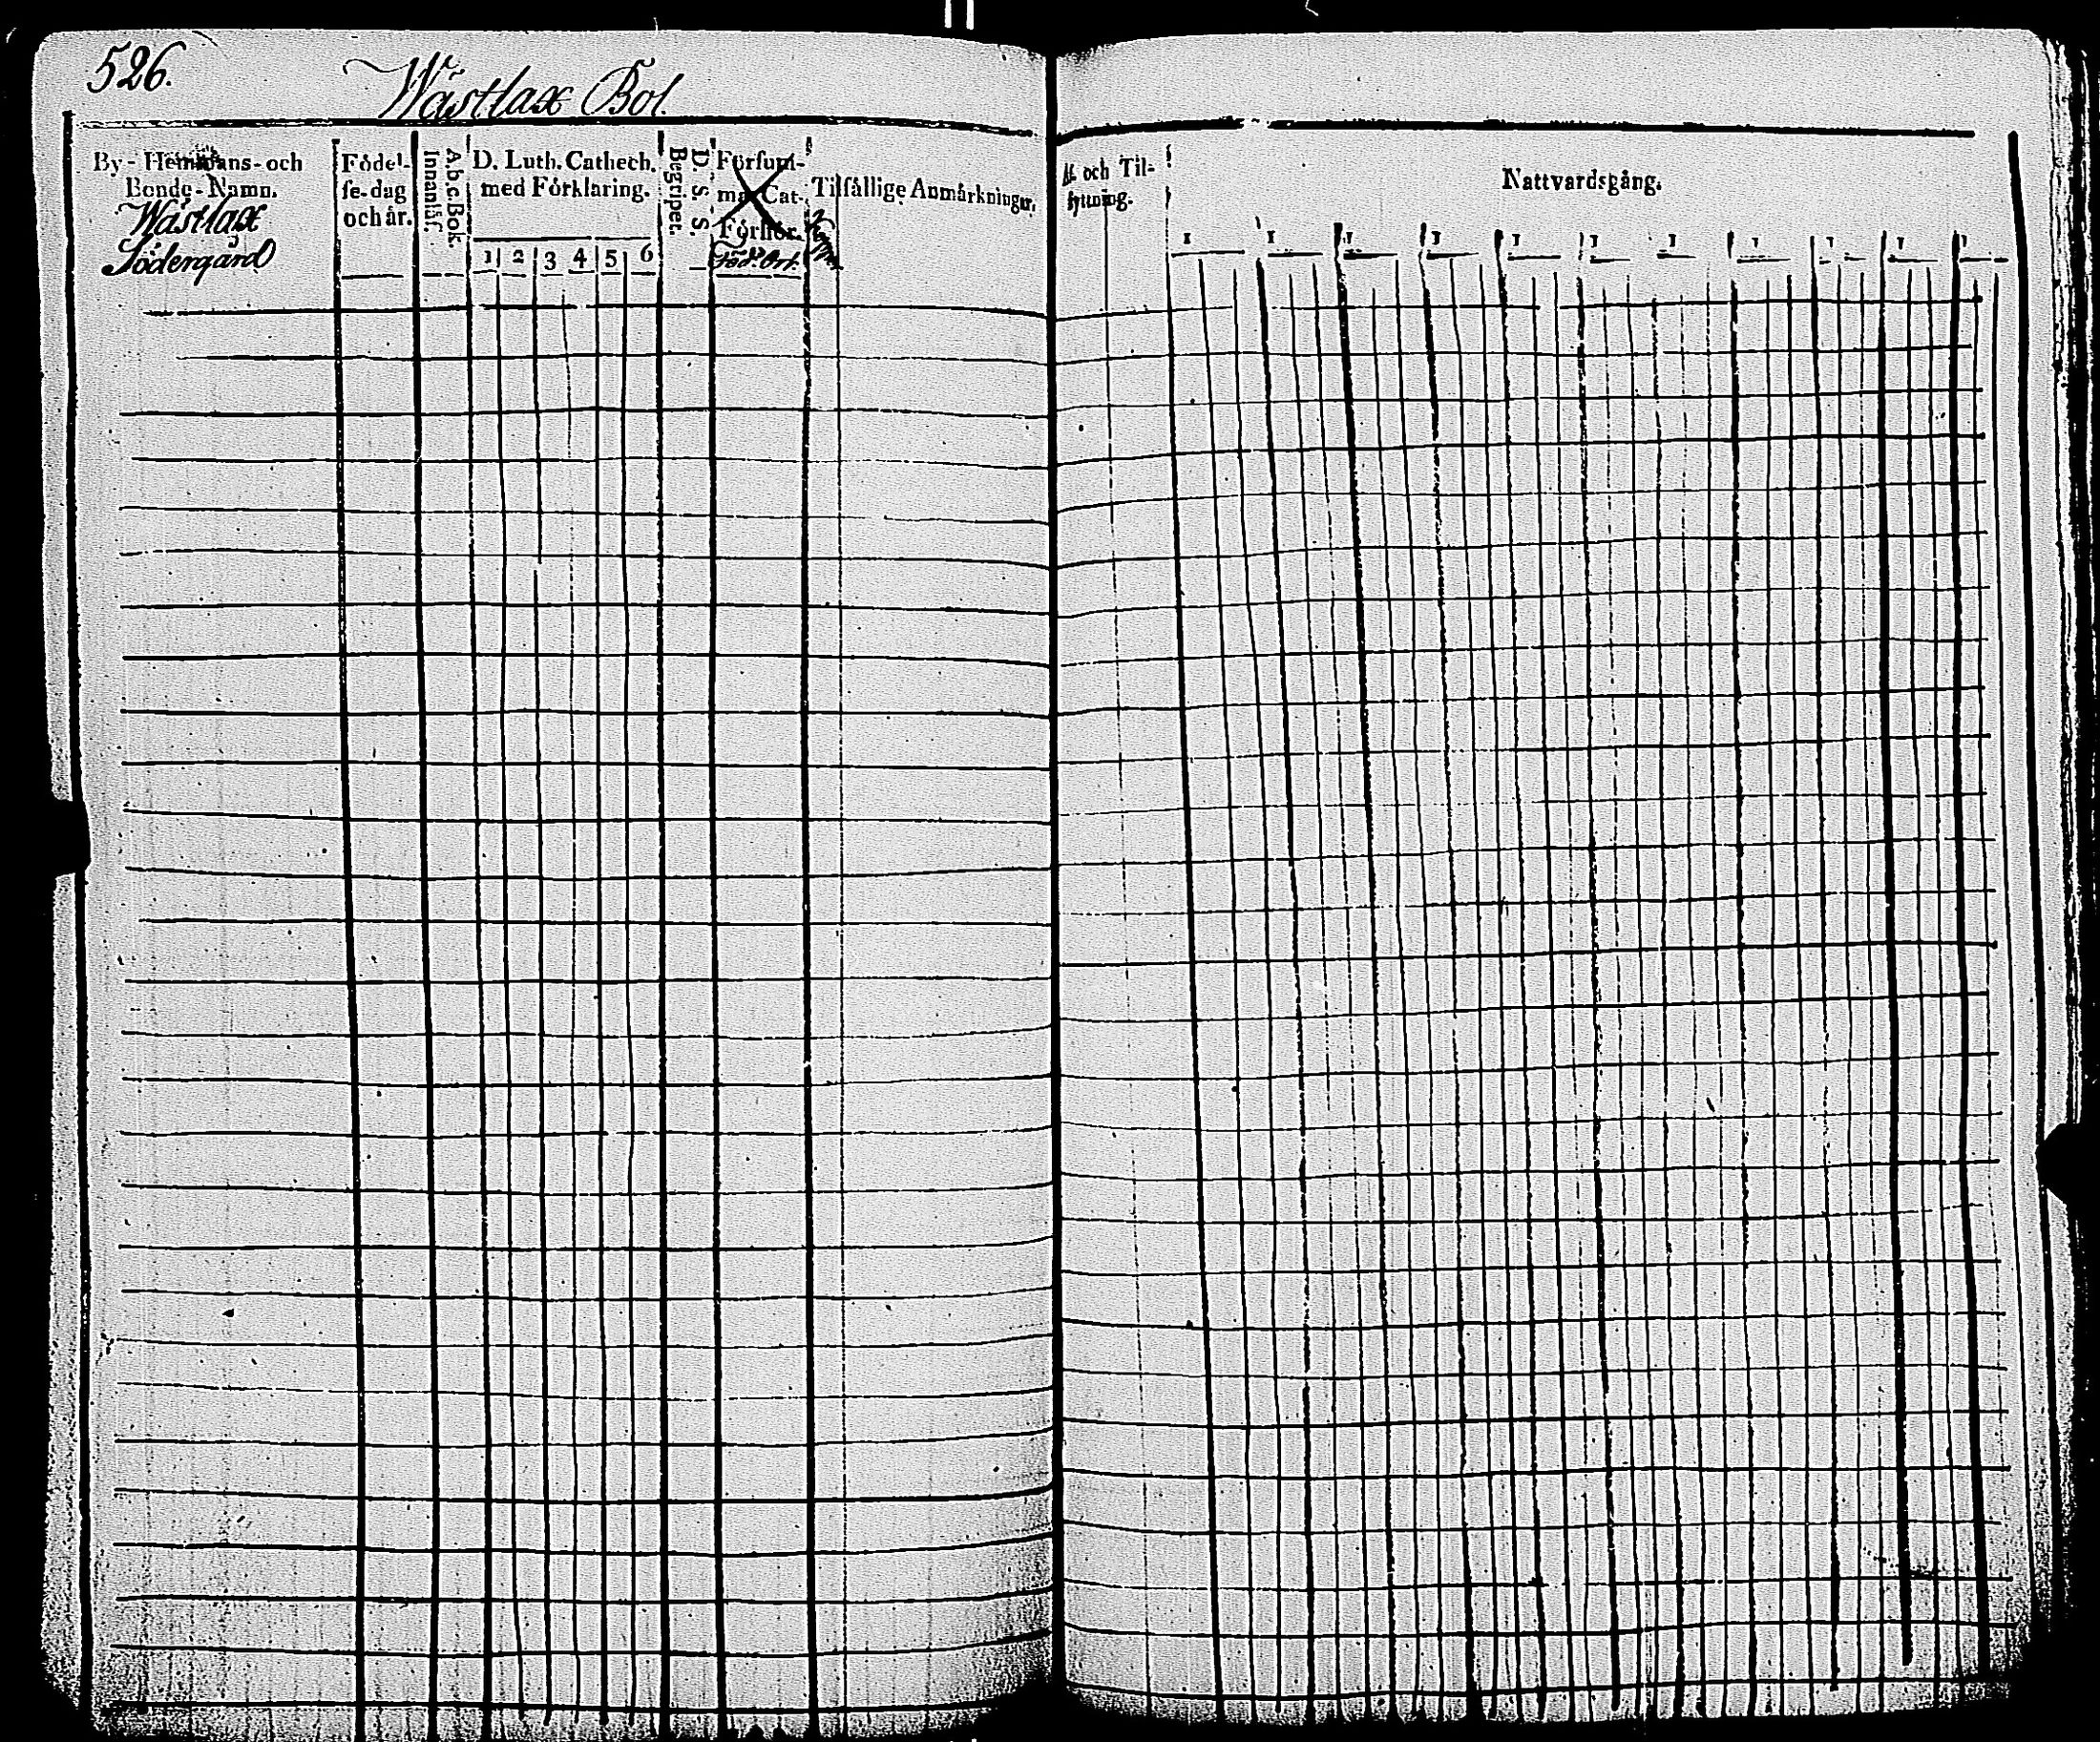 526.
Wästlax Bol.
By- Hemmans- och
Bonde-Namn.
Wästlax
Södergård
Födel-
se-dag
och år.
A.b.c.Bok.
Innanläs.
D. Luth. Cathech.
med Förklaring.
1 2 3 4 5 6
D. S. S.
Begriper.
Försum-
ma Cat.
Förhör.
Föd. Ort.
Tilfällige Anmärkningar.
Af och Til-
flyttning.
Nattvardsgång.
1 1 1 1 1 1 1 1 1 1 1